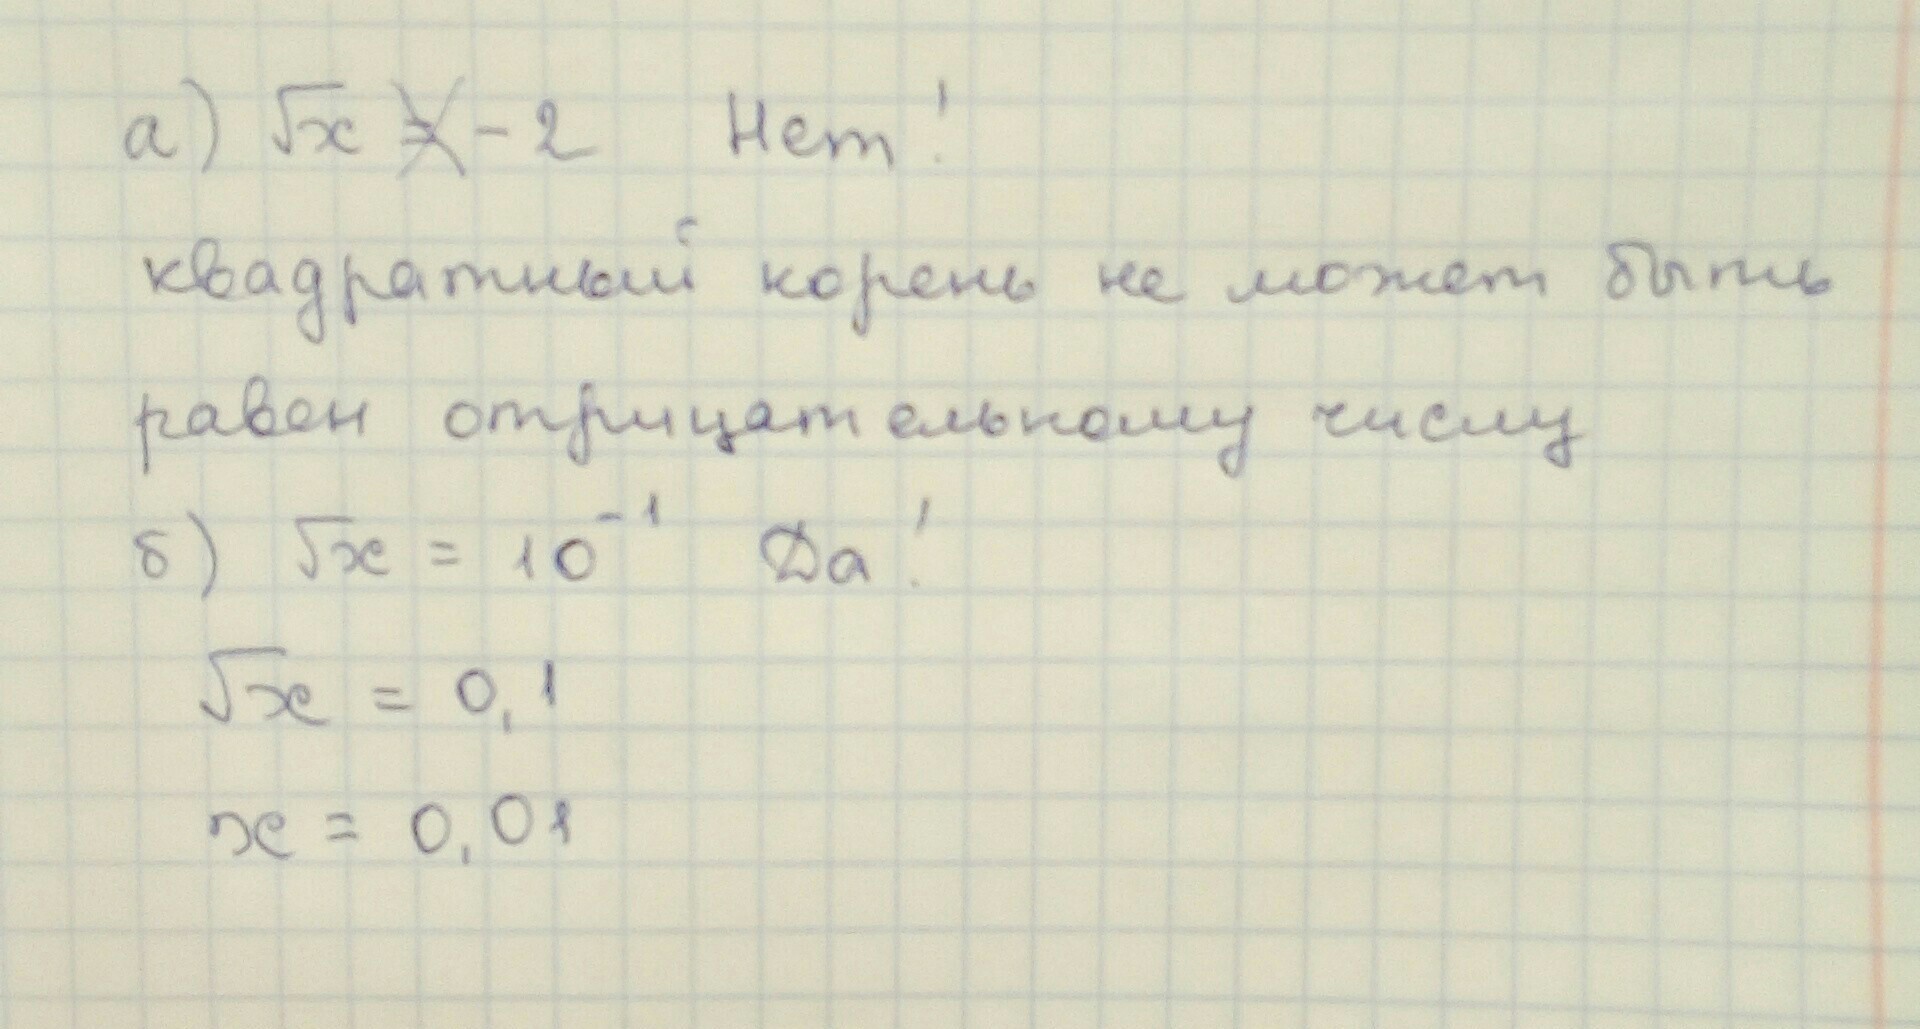 а) √x = -2 Нет!
квадратный корень не может быть
равен отрицательному числу
б) √x = 10⁻¹ Да!
√x = 0,1
x = 0,01